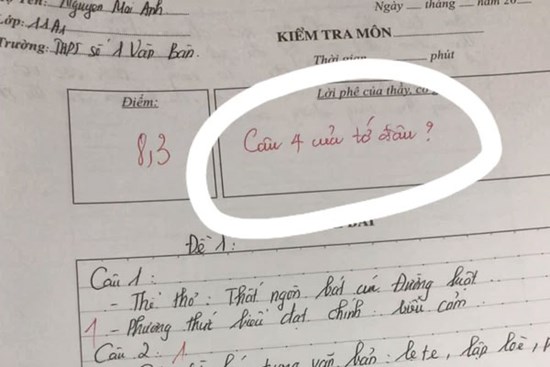 Tên: Nguyễn Mai Anh
Lớp: 11A1
Trường: THPT số 1 Văn Bàn
Ngày ___ tháng ___ năm 20
KIỂM TRA MÔN
Thời gian phút
Điểm:
8,3
Lời phê của thầy, cô
Câu 4 của tớ đâu?
BÀI
Đề 1:
Câu 1:
- Thể thơ: Thất ngôn bát cú Đường luật
1 - Phương thức biểu đạt chính: biểu cảm
Câu 2: 1
văn bản: le te, lập loè,